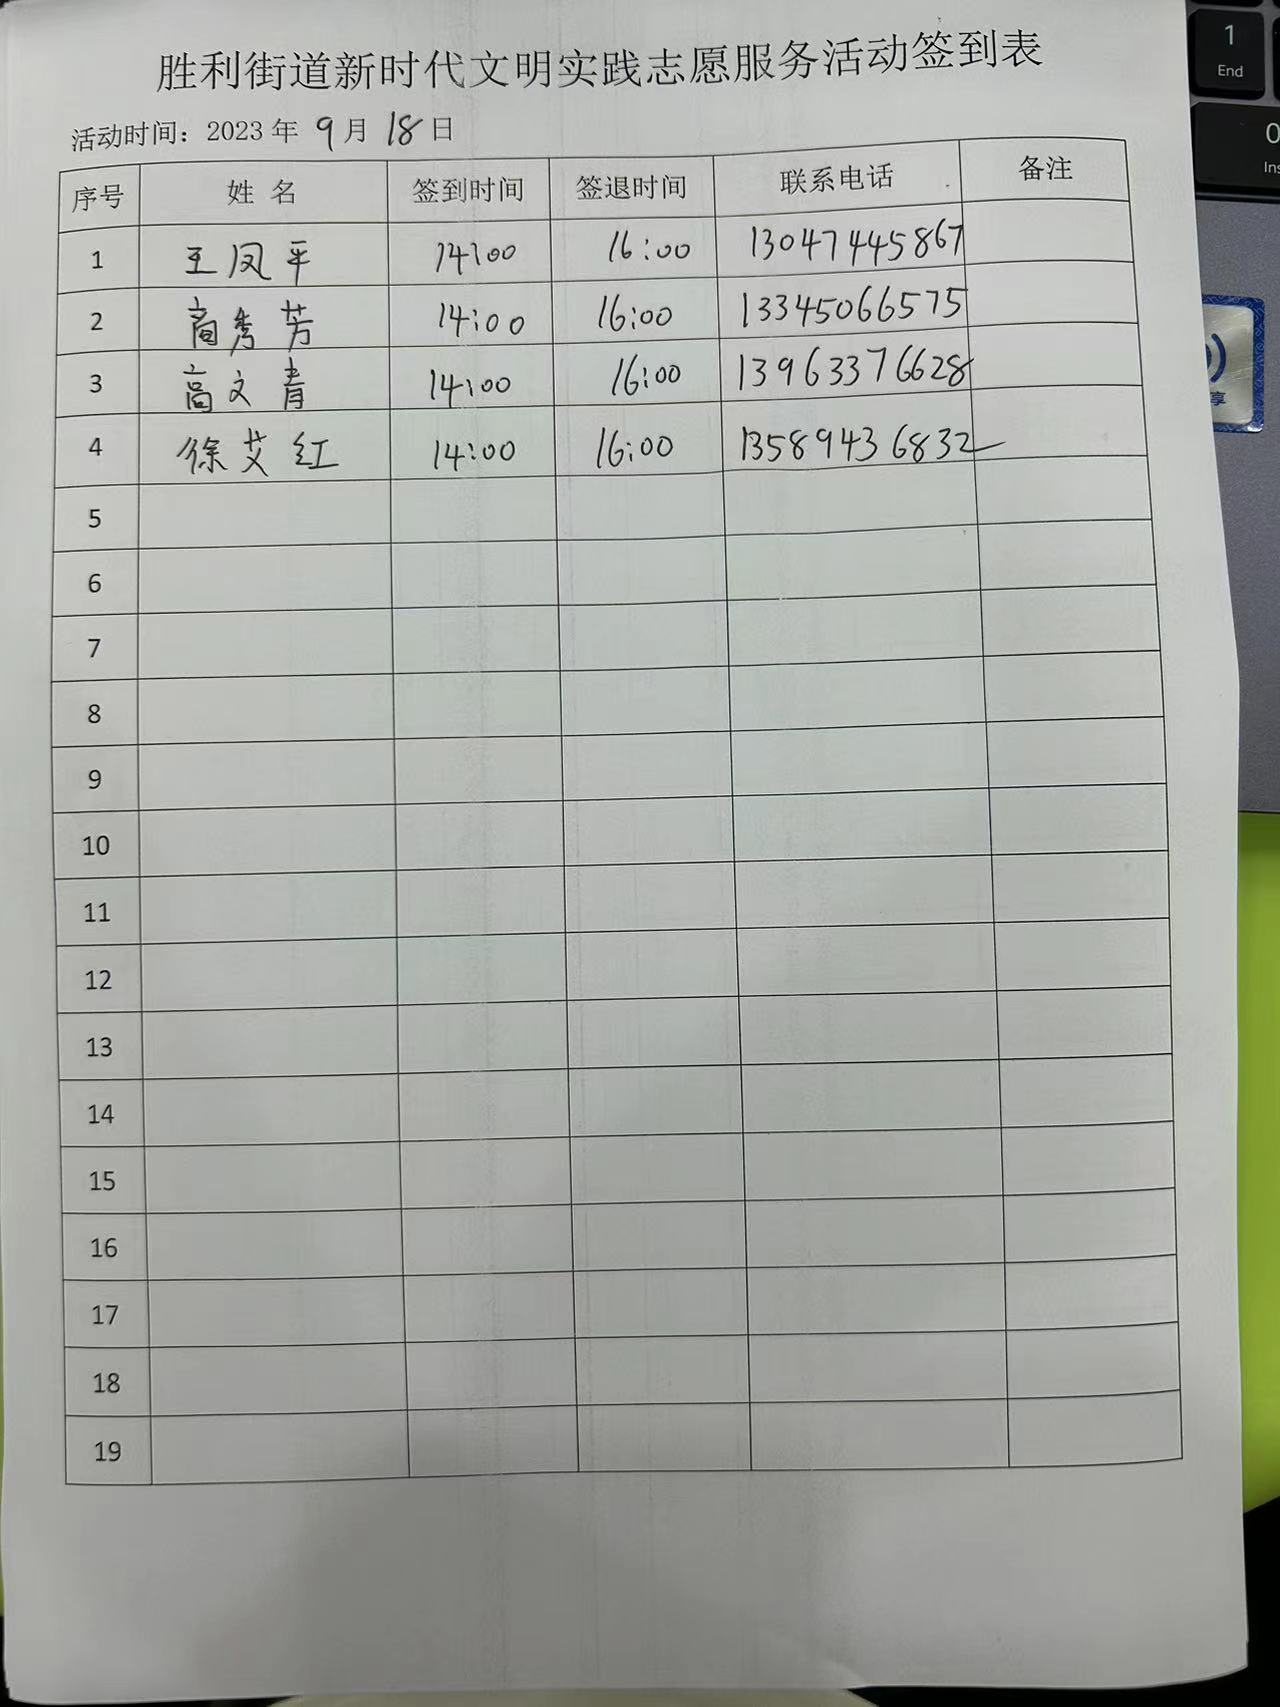 胜利街道新时代文明实践志愿服务活动签到表
活动时间：2023 年 9 月 18 日
序号 姓 名 签到时间 签退时间 联系电话 备注
1 王凤平 14:00 16:00 13047445867
2 商秀芳 14:00 16:00 13345066575
3 高文青 14:00 16:00 13963376628
4 徐艾红 14:00 16:00 13589436832
5
6
7
8
9
10
11
12
13
14
15
16
17
18
19
1
End
0
Ins
享